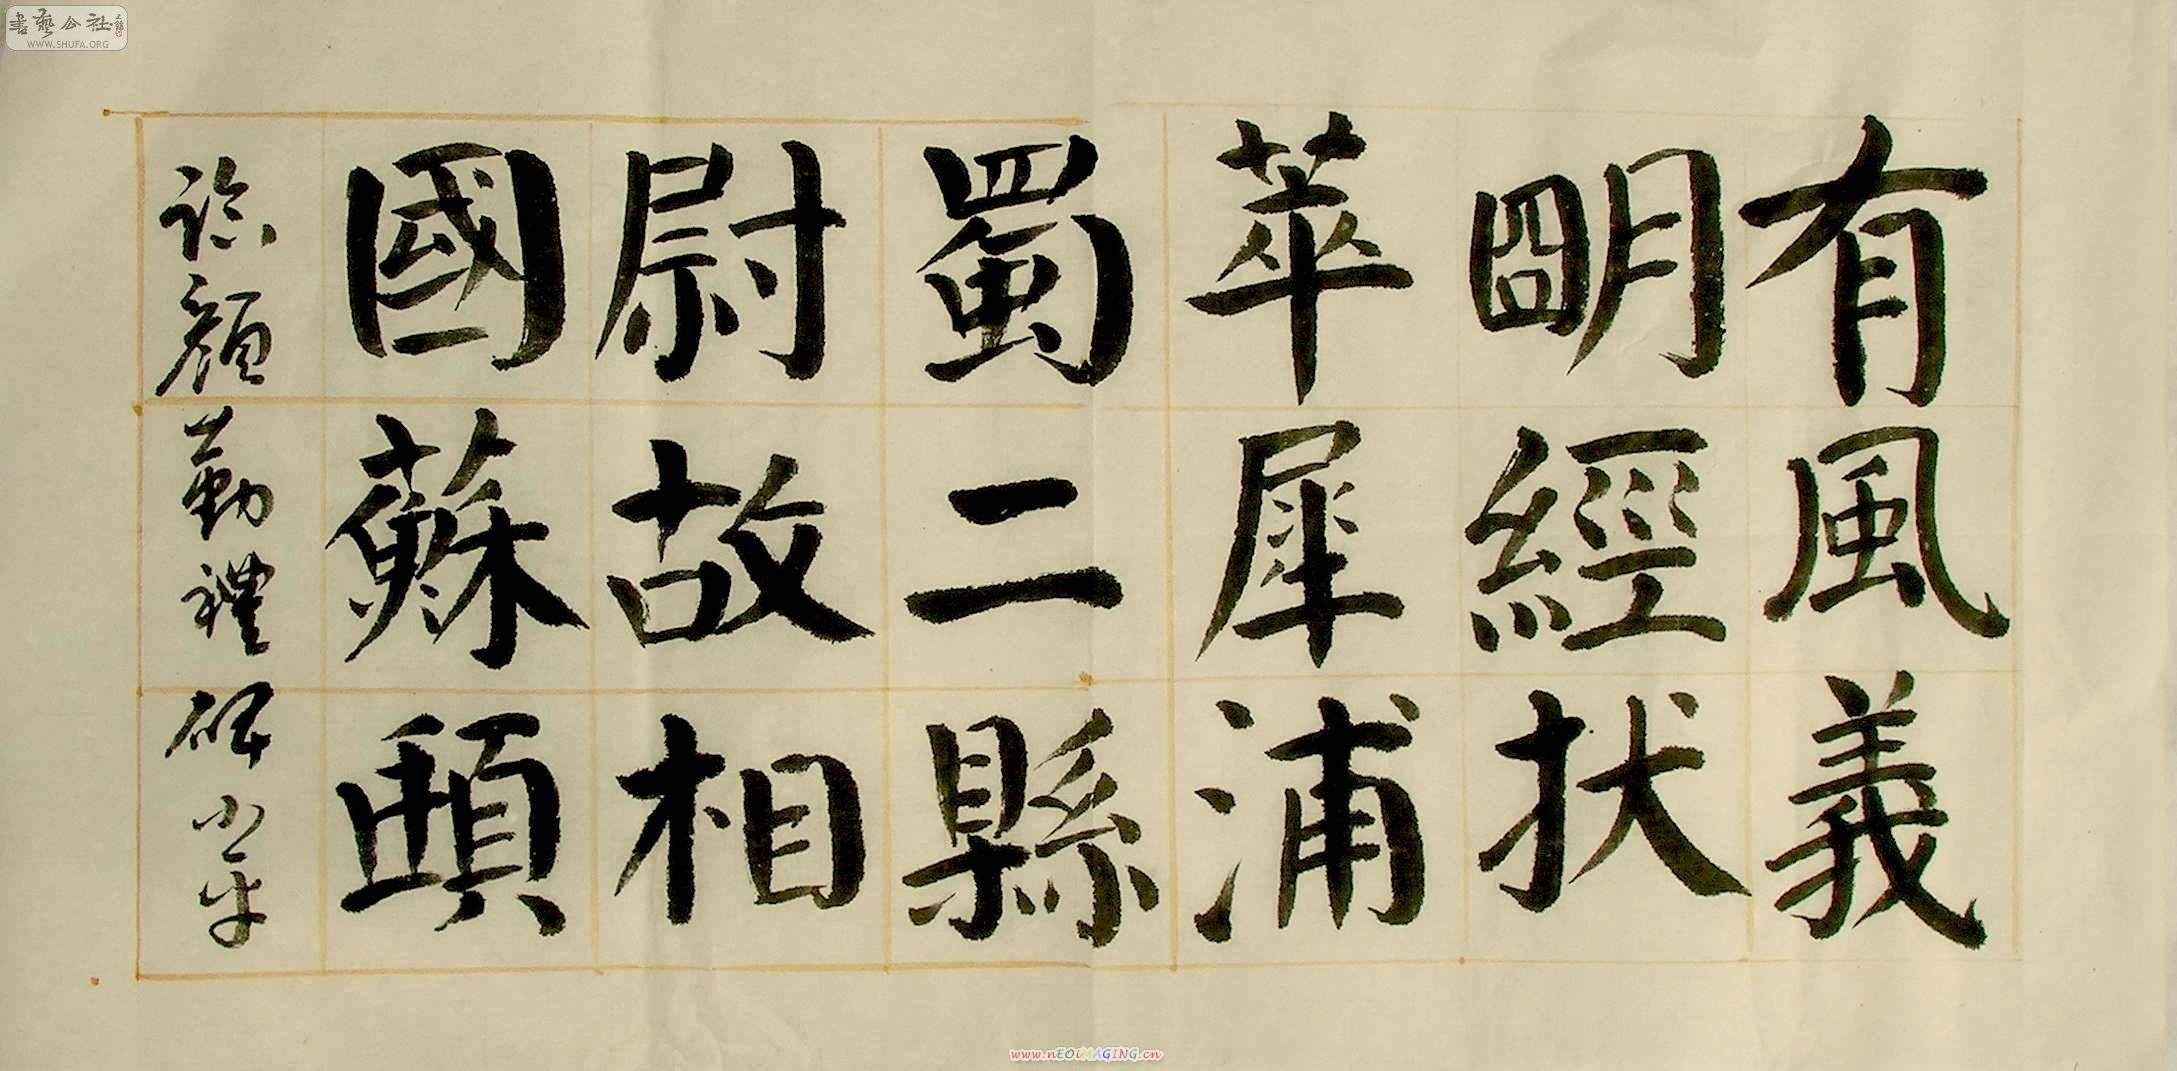 書藝公社
WWW.SHUFA.ORG
有風義
明經拔
萃犀浦
蜀二縣
尉故相
國蘇頲
臨顏勤禮碑 小平
www.nEOiMAGING.cn